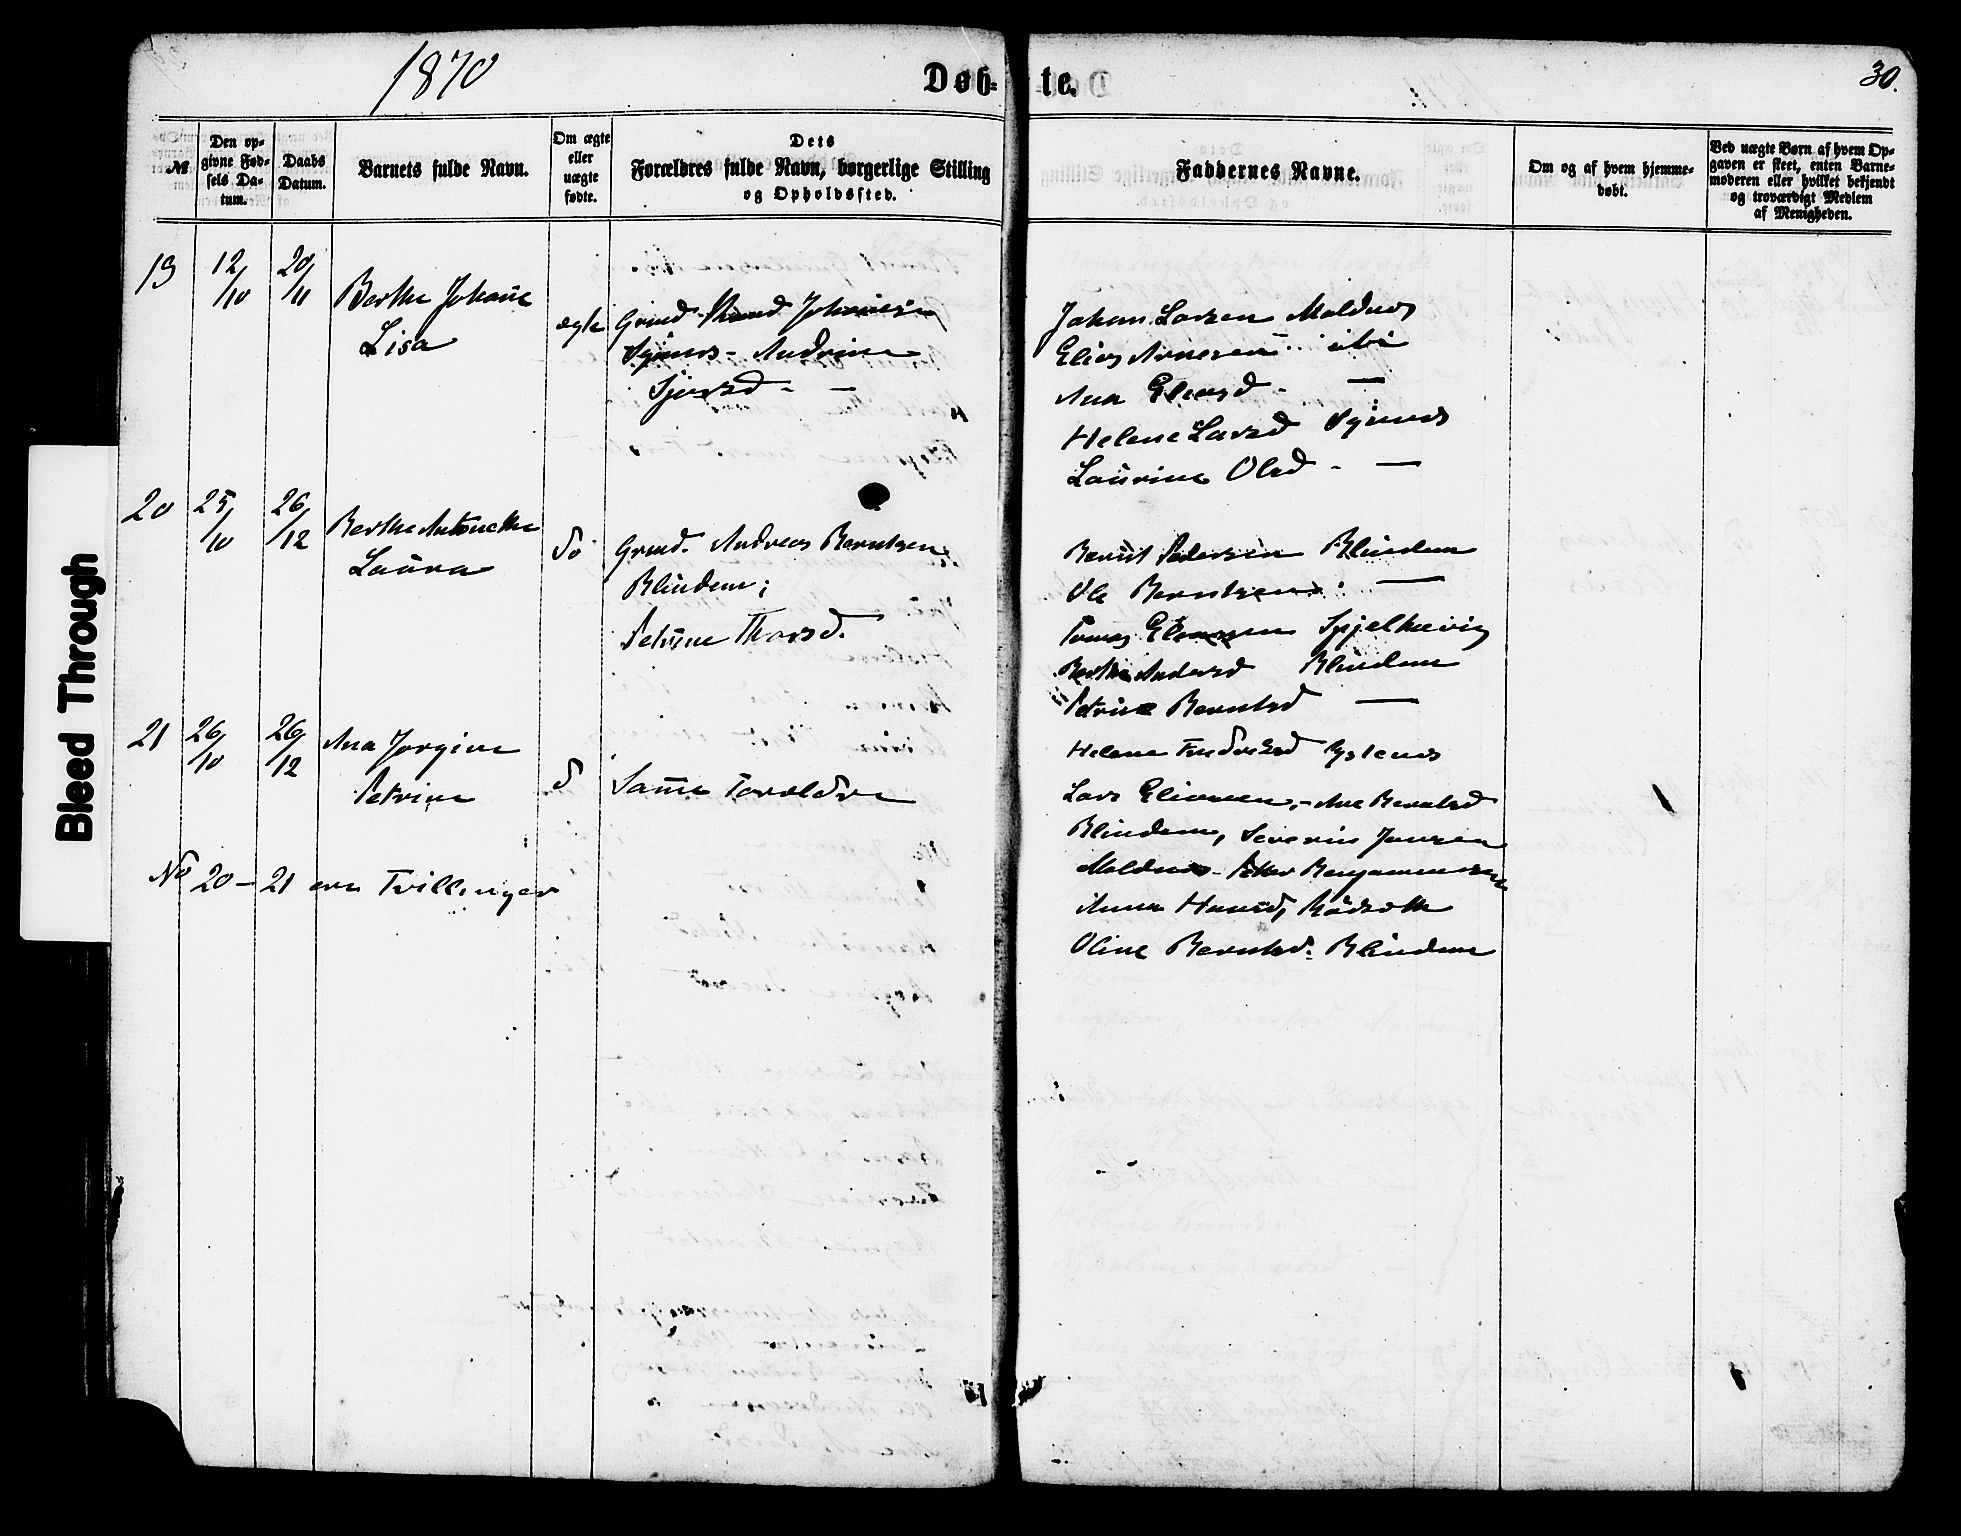 1870
Døb-
te.
30.
№
Den op-
givne Fød-
sels Da-
tum.
Daabs
Datum.
Barnets fulde Navn.
Om ægte
eller
uægte
fødte.
Dets
Forældres fulde Navn, borgerlige Stilling
og Opholdssted.
Faddernes Navne.
Om og af hvem hjemme-
døbt.
Ved uægte Børn af hvem Op-
gaven er skeet, enten Barne-
moderen eller hvilket bekjendt
og troværdigt Medlem
af Menigheden.
19
12/10
20/11
Berthe Johane
Lisa
ægte
Grmd Johnsen
Vgnæs - Andrine
Sjursd - —
Johan Larsen Moldnæs
Elias Arnesen ibi
Ana Eliasd - —
Helene Larsd Vgnæs
Laurine Olsd - —
20
25/10
26/12
Berthe Antonette
Laura
do
Grmd. Andreas Berntsen
Blindem;
Petrine Thorsd.
Bernt Pedersen Blindem
Ole Berntsen —
Tomas Spjelkevig
Berthe Andersd Blindem
Petrine Berntsd —
21
26/10
26/12
Ana Jorgine
Petrine
d
Samme Foreldre
Helene Frederiksd Ystenes
Lars Eliasen, - Ane Berntsd
Blindem, Severin Jonsen
Moldnæs - Petter Benjaminsen
Anna Hansd,
Oline Berntsd. Blindem
No 20 - 21 ere Tvillinger
Bleed Through